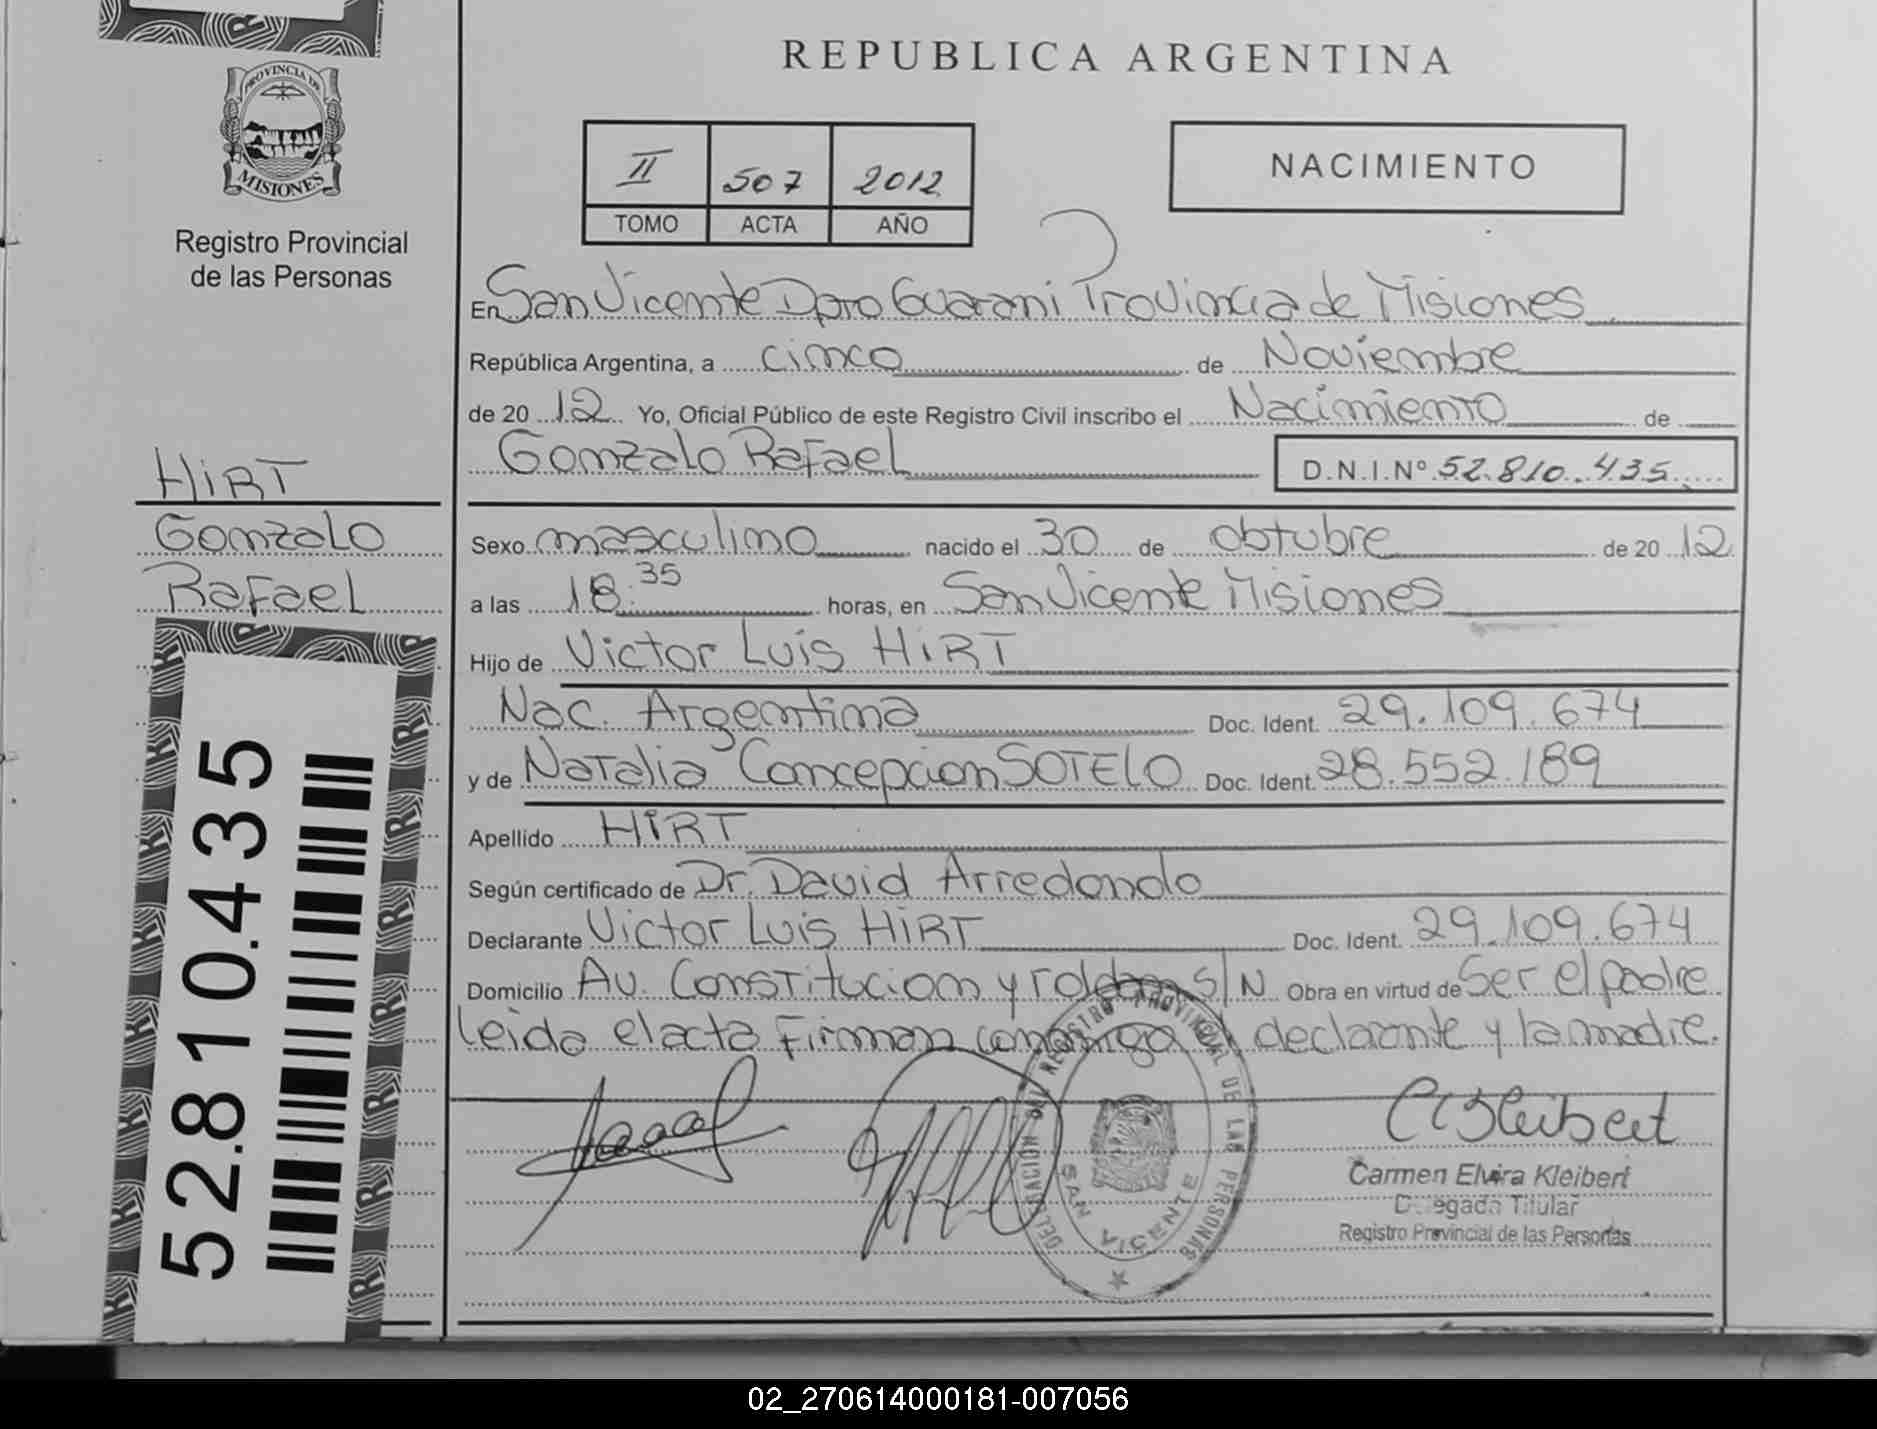 PROVINCIA DE
MISIONES
Registro Provincial
de las Personas
HIRT
Gonzalo
Rafael
52.810.435
REPUBLICA ARGENTINA
II 507 2012
TOMO ACTA AÑO
NACIMIENTO
En San Vicente Dpto Guarani Provincia de Misiones
República Argentina, a cinco de Noviembre
de 20 12 Yo, Oficial Público de este Registro Civil inscribo el Nacimiento de
Gonzalo Rafael D.N.I. Nº 52.810.435
Sexo masculino nacido el 30 de obtubre de 20 12
a las 18:35 horas, en San Vicente Misiones
Hijo de Victor Luis HIRT
Nac. Argentina Doc. Ident. 29.109.674
y de Natalia Concepcion SOTELO Doc. Ident. 28.552.189
Apellido HIRT
Según certificado de Dr. David Arredondo
Declarante Victor Luis HIRT Doc. Ident. 29.109.674
Domicilio Av. Constitucion y roldan S/N Obra en virtud de Ser el padre
leida el acta Firman conmigo el declarante y la madre.
DELEGACION DEL REGISTRO PROVINCIAL DE LAS PERSONAS
SAN VICENTE
CEKleibert
Carmen Elvira Kleibert
Delegada Titular
Registro Provincial de las Personas
02_270614000181-007056